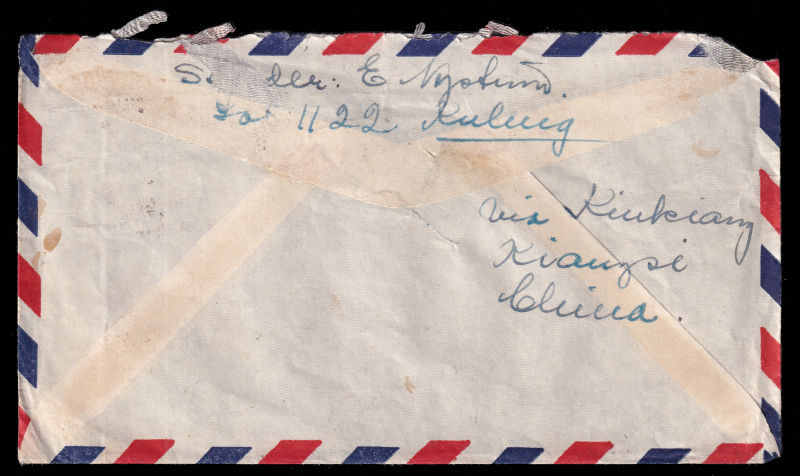 Sender: E Nystrom.
Lo 1122 Kuling
via Kiukiang
Kiangsi
China.